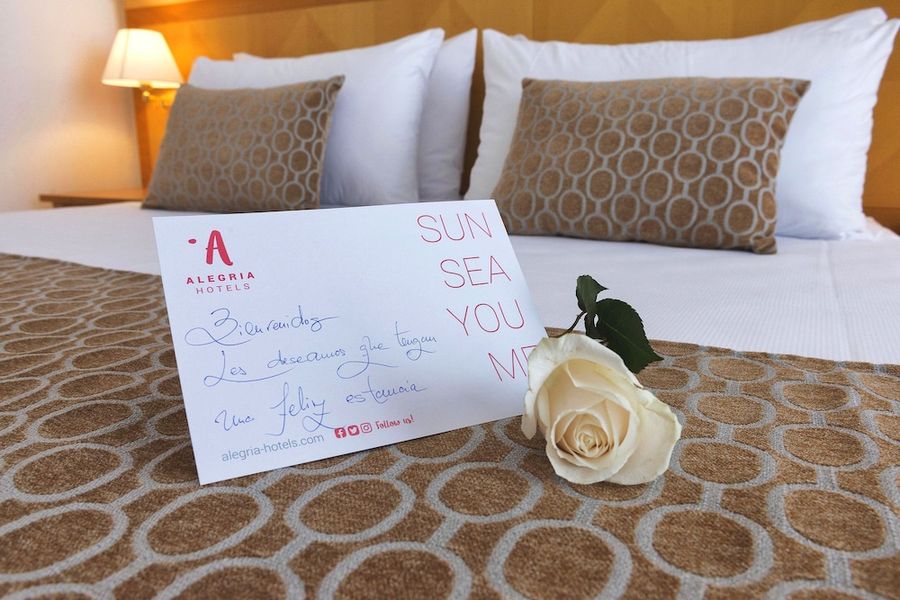 ALEGRIA
HOTELS
SUN
SEA
YOU
ME
Bienvenidos
Les deseamos que tengan
una feliz estancia
alegria-hotels.com Follow us!